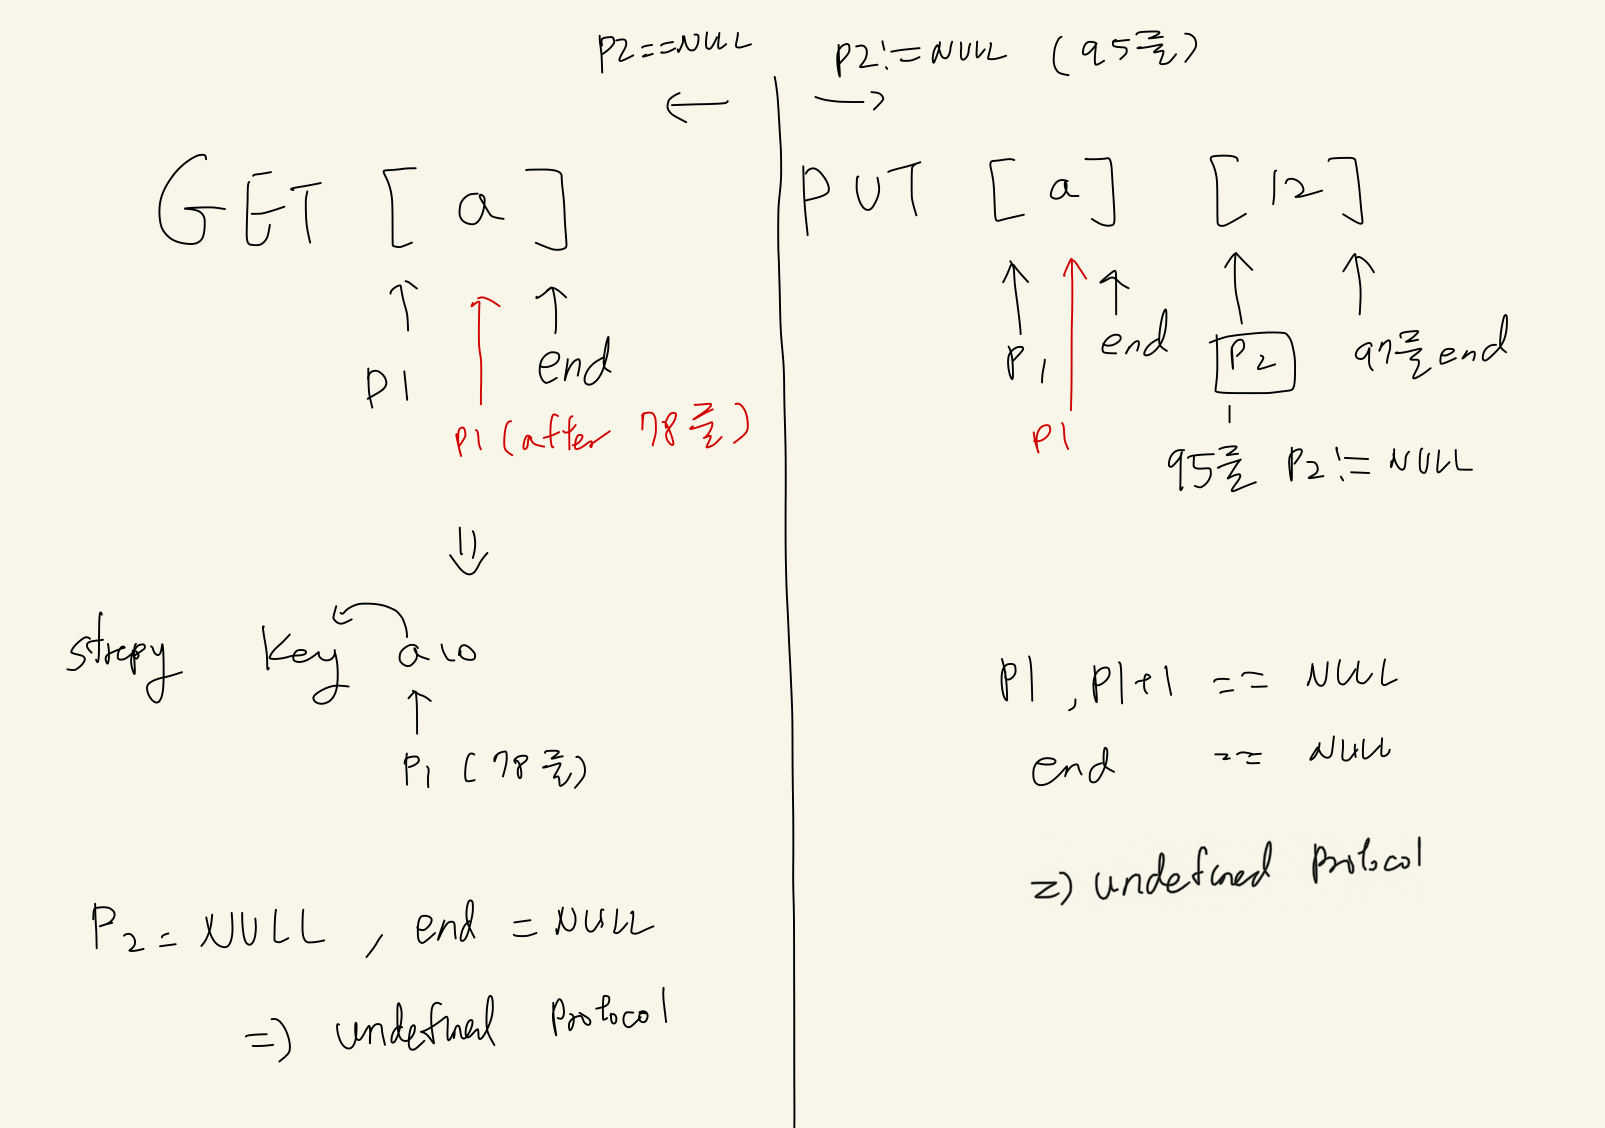 P2==NULL
P2!=NULL (95줄)
GET [a]
P1
end
P1 (after 78줄)
strcpy key a\0
P1 (78줄)
P2=NULL, end=NULL
=> undefined protocol
PUT [a] [12]
P1
end
P2
97줄 end
P1
95줄 P2!=NULL
P1, P1+1 == NULL
end == NULL
=> undefined protocol